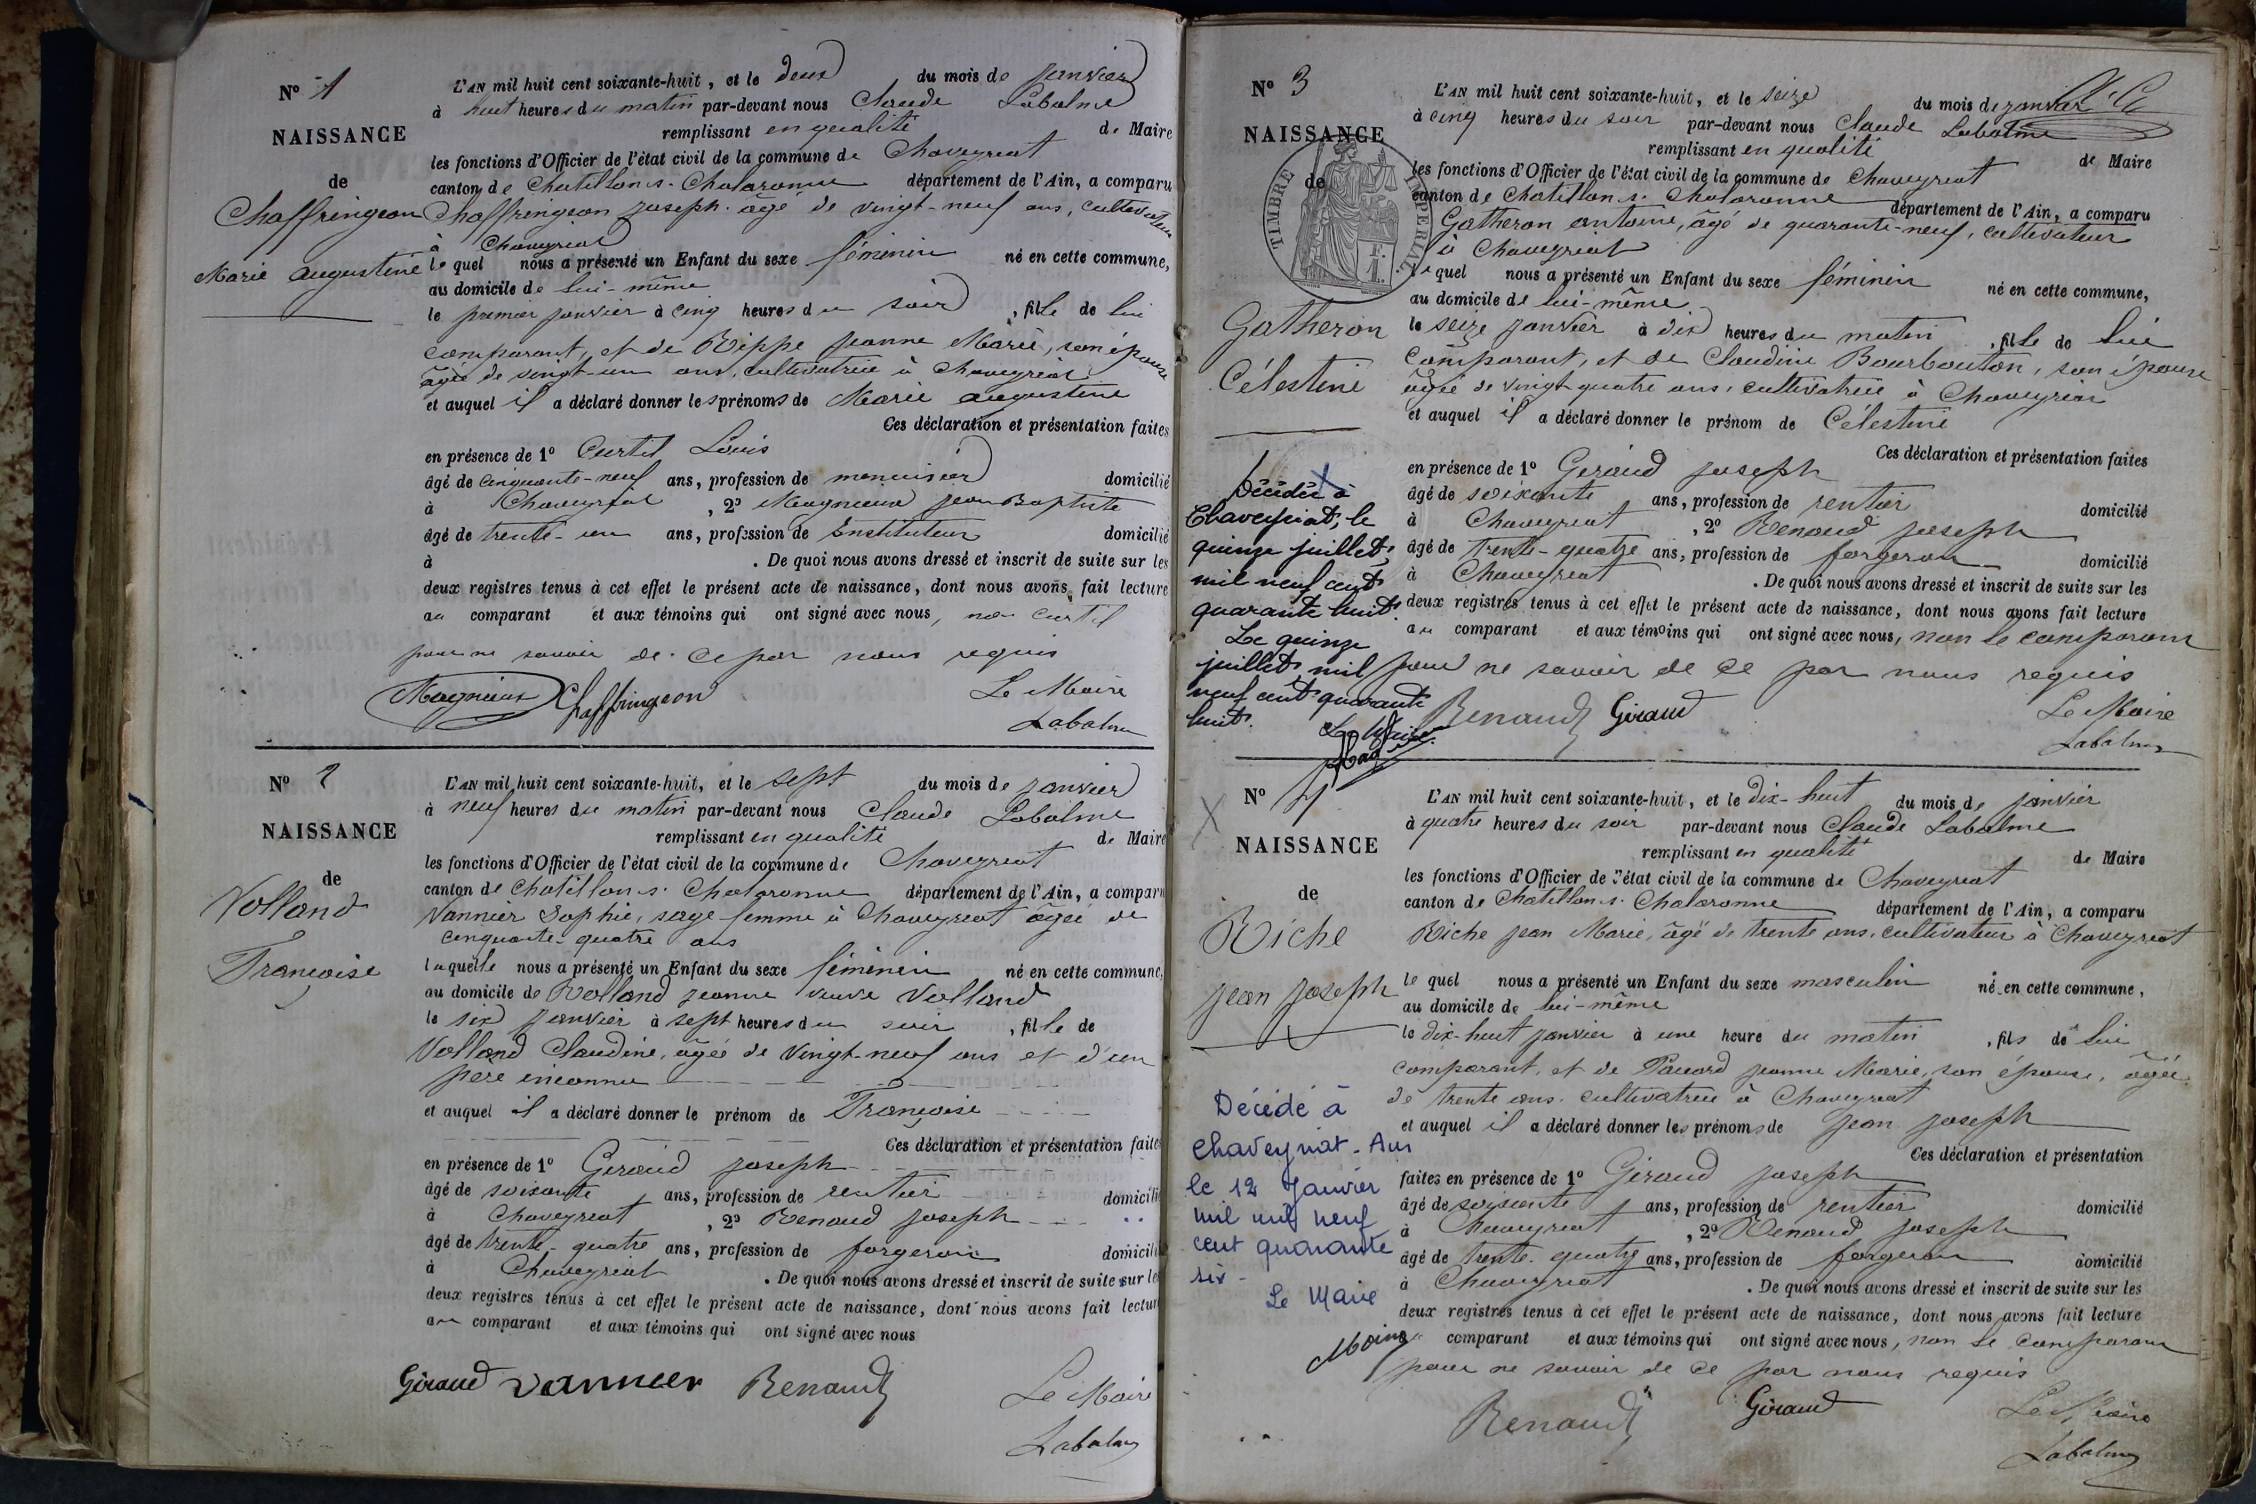 N° 1
NAISSANCE
de
Chaffringeon
Marie Augustine
L'AN mil huit cent soixante-huit, et le deux du mois de janvier
à huit heures du matin par-devant nous Claude Labalme
remplissant en qualité de Maire
les fonctions d'Officier de l'état civil de la commune de Chaveyriat
canton de Chatillon s. Chalaronne département de l'Ain, a comparu
Chaffringeon joseph. âgé de vingt-neuf ans, cultivateur
à Chaveyriat
lequel nous a présenté un Enfant du sexe féminin né en cette commune,
au domicile de lui-même
le premier janvier à cinq heures du soir, fille de lui
comparant, et de Rippe jeanne Marie, son épouse
âgée de vingt-un ans, cultivatrice à Chaveyriat
et auquel il a déclaré donner les prénoms de Marie augustine
Ces déclaration et présentation faites
en présence de 1° Curtil Louis
âgé de cinquante-neuf ans, profession de menuisier domicilié
à Chaveyriat, 2° Magnieux jean Baptiste
âgé de trente-un ans, profession de Instituteur domicilié
à . De quoi nous avons dressé et inscrit de suite sur les
deux registres tenus à cet effet le présent acte de naissance, dont nous avons fait lecture
au comparant et aux témoins qui ont signé avec nous, non curtil
pour ne savoir de ce par nous requis
Magnieux Chaffringeon Le Maire
Labalme
N° 2
NAISSANCE
de
Volland
Françoise
L'AN mil huit cent soixante-huit, et le sept du mois de janvier
à neuf heures du matin par-devant nous Claude Labalme
remplissant en qualité de Maire
les fonctions d'Officier de l'état civil de la commune de Chaveyriat
canton de Chatillon s. Chalaronne département de l'Ain, a comparu
Vannier Sophie, sage-femme à Chaveyriat âgée de
cinquante-quatre ans
laquelle nous a présenté un Enfant du sexe féminin né en cette commune,
au domicile de Rolland jeanne veuve Volland
le six janvier à sept heures du soir, fille de
Volland Claudine, âgée de vingt-neuf ans et d'un
père inconnu
et auquel il a déclaré donner le prénom de Françoise
Ces déclaration et présentation faites
en présence de 1° Giraud joseph
âgé de soixante ans, profession de rentier domicilié
à Chaveyriat, 2° Renaud joseph
âgé de trente-quatre ans, profession de forgeron domicilié
à Chaveyriat . De quoi nous avons dressé et inscrit de suite sur les
deux registres tenus à cet effet le présent acte de naissance, dont nous avons fait lecture
au comparant et aux témoins qui ont signé avec nous
Giraud Vannier Renaud Le Maire
Labalme
N° 3
NAISSANCE
de
TIMBRE IMPERIAL
1 F.
Gatheron
Célestine
L'AN mil huit cent soixante-huit, et le seize du mois de janvier
à cinq heures du soir par-devant nous Claude Labalme
remplissant en qualité de Maire
les fonctions d'Officier de l'état civil de la commune de Chaveyriat
canton de Chatillon s. Chalaronne département de l'Ain, a comparu
Gatheron antoine, âgé de quarante-neuf, cultivateur
à Chaveyriat
lequel nous a présenté un Enfant du sexe féminin né en cette commune,
au domicile de lui-même
le seize janvier à dix heures du matin, fille de lui
comparant, et de Claudine Bourbouton, son épouse
âgée de vingt-quatre ans, cultivatrice à Chaveyriat
et auquel il a déclaré donner le prénom de Célestine
Ces déclaration et présentation faites
en présence de 1° Giraud joseph
âgé de soixante ans, profession de rentier domicilié
à Chaveyriat, 2° Renaud joseph
âgé de trente-quatre ans, profession de forgeron domicilié
à Chaveyriat . De quoi nous avons dressé et inscrit de suite sur les
deux registres tenus à cet effet le présent acte de naissance, dont nous avons fait lecture
au comparant et aux témoins qui ont signé avec nous, non le comparant
pour ne savoir de ce par nous requis
Renaud Giraud Le Maire
Labalme
Décédée à
Chaveyriat, le
quinze juillet
mil neuf cent
quarante huit.
Le quinze
juillet mil
neuf cent quarante
huit.
Le Maire
N° 4
NAISSANCE
de
Riche
jean joseph
L'AN mil huit cent soixante-huit, et le dix-huit du mois de janvier
à quatre heures du soir par-devant nous Claude Labalme
remplissant en qualité de Maire
les fonctions d'Officier de l'état civil de la commune de Chaveyriat
canton de Chatillon s. Chalaronne département de l'Ain, a comparu
Riche jean Marie, âgé de trente ans, cultivateur à Chaveyriat
lequel nous a présenté un Enfant du sexe masculin né en cette commune,
au domicile de lui-même
le dix-huit janvier à une heure du matin, fils de lui
comparant, et de Pauard jeanne Marie, son épouse, âgée
de trente ans. cultivatrice à Chaveyriat
et auquel il a déclaré donner les prénoms de jean joseph
Ces déclaration et présentation
faites en présence de 1° Giraud joseph
âgé de soixante ans, profession de rentier domicilié
à Chaveyriat, 2° Renaud joseph
âgé de trente-quatre ans, profession de forgeron domicilié
à Chaveyriat . De quoi nous avons dressé et inscrit de suite sur les
deux registres tenus à cet effet le présent acte de naissance, dont nous avons fait lecture
comparant et aux témoins qui ont signé avec nous, non le comparant
pour ne savoir de ce par nous requis
Renaud Giraud Le Maire
Labalme
Décédé à
Chaveyriat - Ain
le 12 Janvier
mil neuf
cent quarante
six -
Le Maire